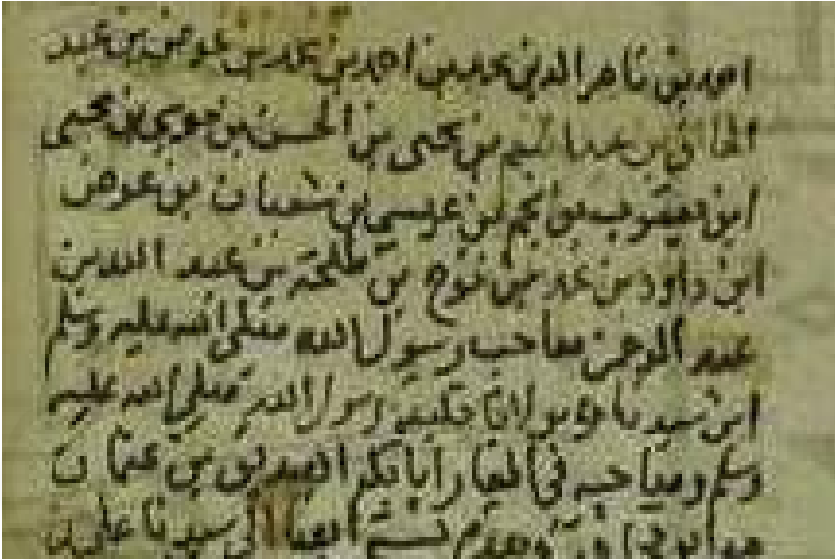 احمد بن ناصر الدين محمد بن احمد بن محمد بن عوض بن عبد
الخالق بن عبد المنعم بن يحيى بن الحسن بن موسى بن يحيى
ابن يعقوب بن نجم بن عيسى بن شعبان بن عوض
ابن داود بن محمد بن نوح بن طلحة بن عبد الله بن
عبد الرحمن صاحب رسول الله صلى الله عليه وسلم
ابن سيدنا ومولانا خليفة رسول الله صلى الله عليه
وسلم وصاحبه في الغار ابا بكر الصديق بن عثمان
ايضا الى سيدنا على بن